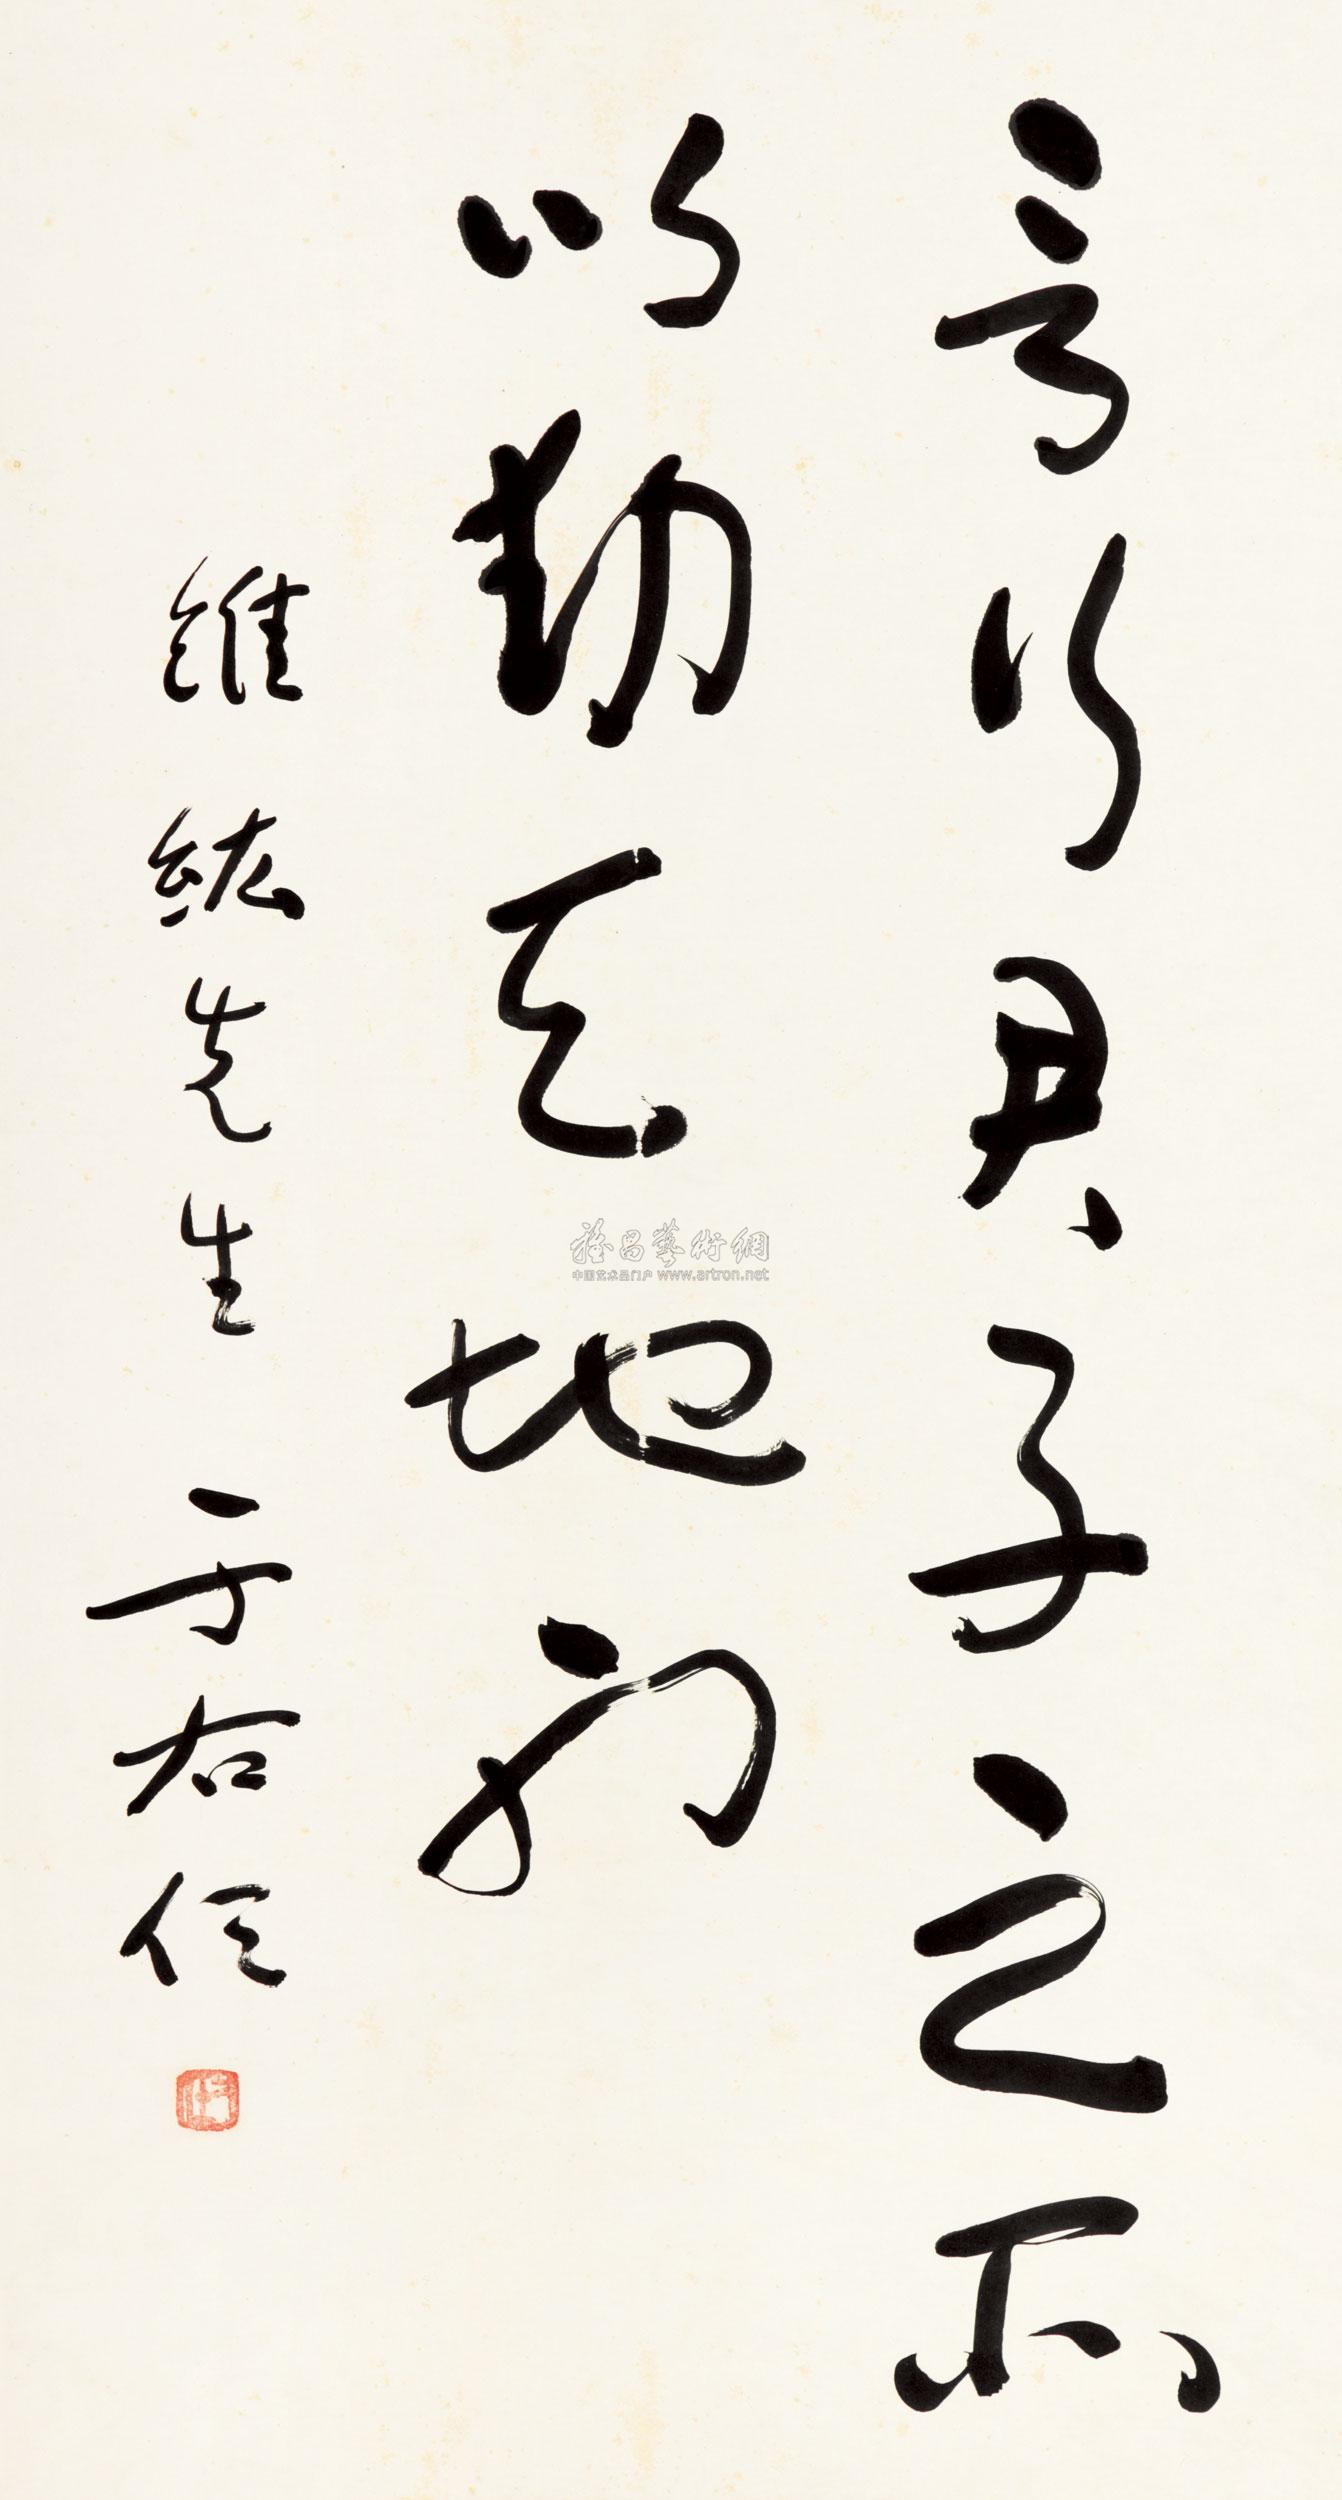 言行君子之所
以動天地也
維紘先生 于右任
雅昌藝術網
中国艺术品门户 www.artron.net